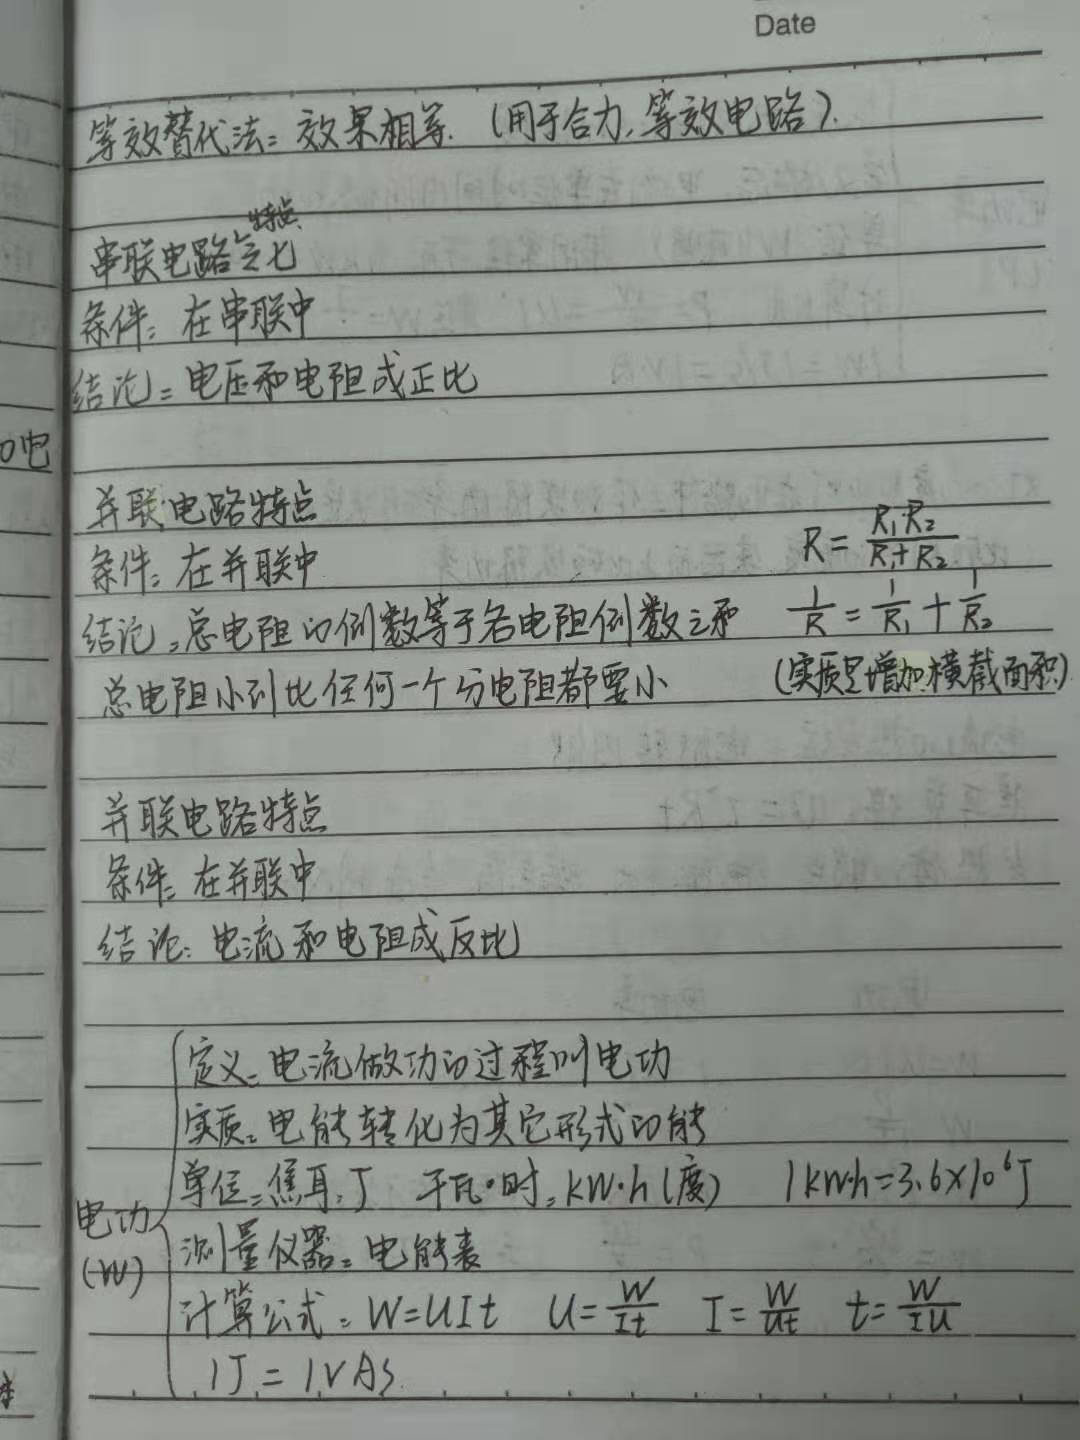 Date
等效替代法:效果相等.(用于合力,等效电路).
特点
串联电路之七
条件:在串联中
结论:电压和电阻成正比
电
并联电路特点
条件:在并联中
R=R₁·R₂/R₁+R₂
结论:总电阻的倒数等于各电阻倒数之和 1/R=1/R₁+1/R₂
总电阻小到比任何一个分电阻都要小 (实质是增加横截面积)
并联电路特点
条件:在并联中
结论:电流和电阻成反比
定义:电流做功的过程叫电功
实质:电能转化为其它形式的能
单位:焦耳:J 千瓦·时:kW·h(度) 1kW·h=3.6×10⁶J
电功
(W)
测量仪器:电能表
计算公式:W=UIt U=W/It I=W/Ut t=W/IU
1J=1VAS